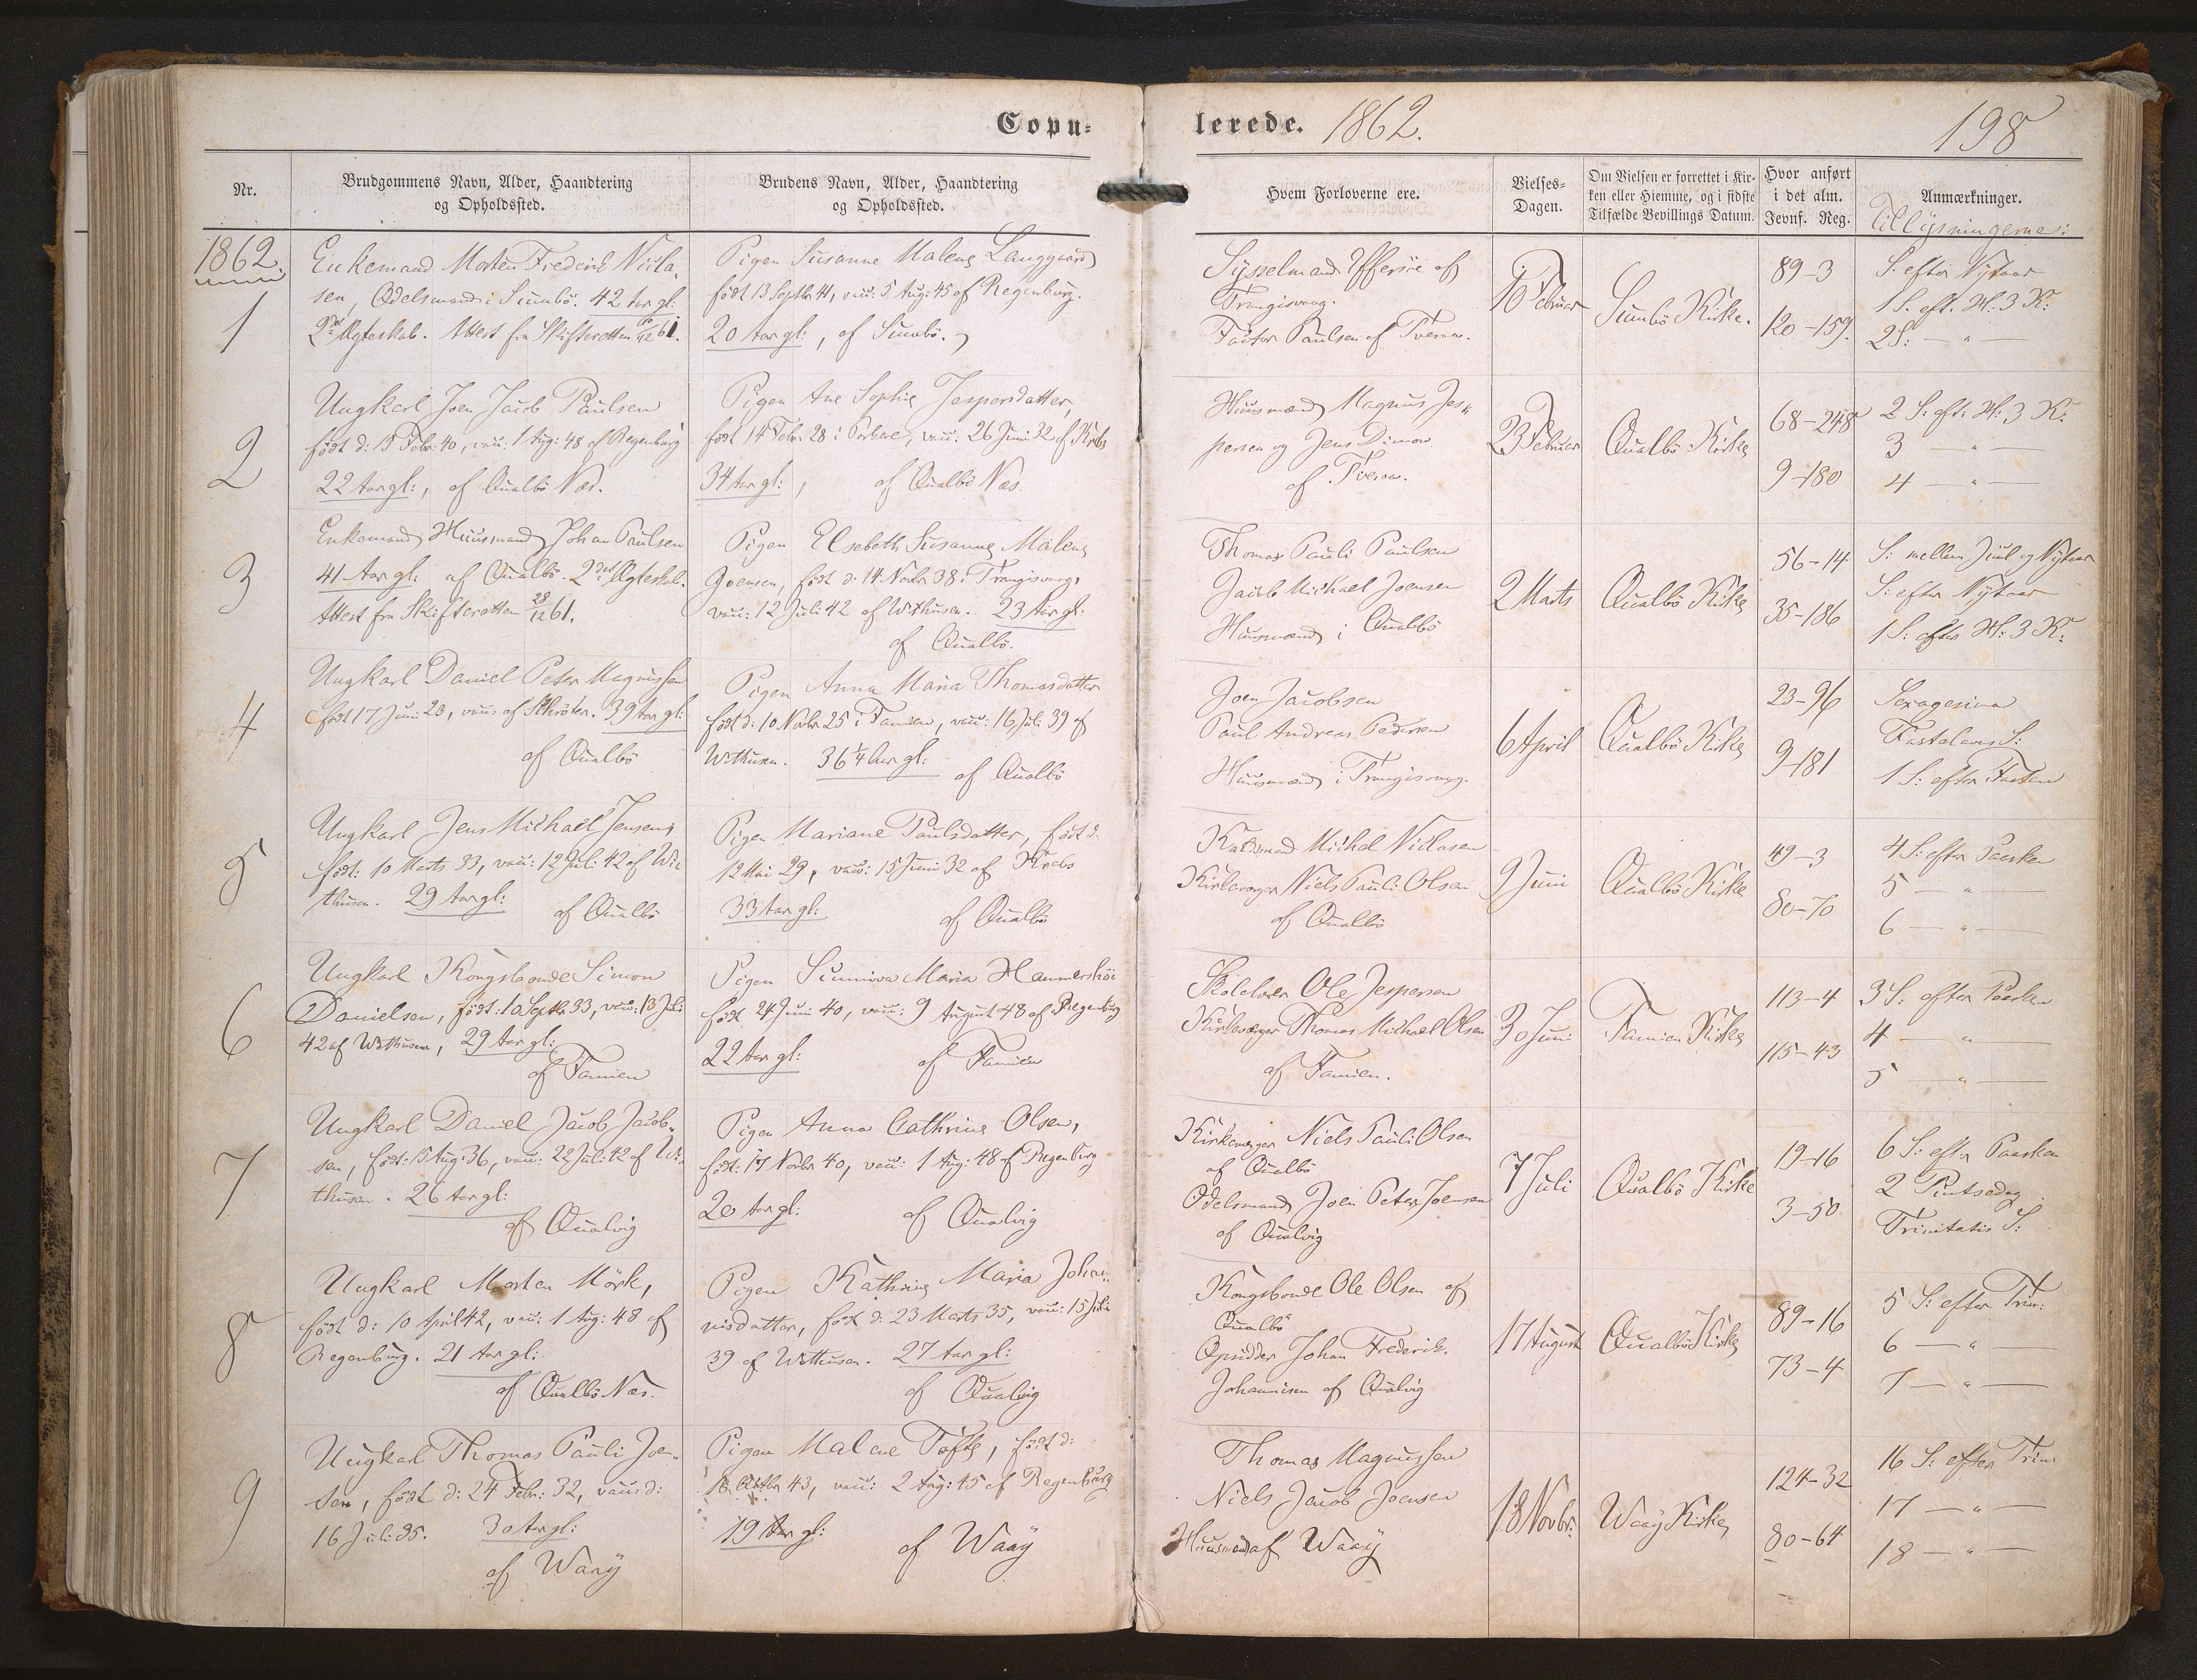 Copu=
lerede. 1862.
198
Nr.
Brudgommens Navn, Alder, Haandtering
og Opholdssted.
Brudens Navn, Alder, Haandtering
og Opholdssted.
Hvem Forloverne ere.
Vielses-
Dagen.
Om Vielsen er forrettet i Kir-
ken eller Hiemme, og i sidste
Tilfælde Bevillings Datum.
Hvor anført
i det alm.
Jevnf. Reg.
Anmærkninger.
Tillysningerne:
1862.
1
Enkemand Morten Frederik Nicla-
sen, Odelsmand i Sumbö. 42 Aar gl:
2det Ægteskab. Attest fra Skifteretten 61.
Pigen Susanne Malene Langgaard
födt 13 Septbr 41, vacc: 5 Aug: 45 af Regenburg.
20 Aar gl:, af Sumbö.
Sysselmand Effersöe af
Trangisvaag.
Factor Paulsen af Tveraa.
16 Februar
Sumbö Kirke.
89-3
120-159.
S: efter Nytaar
1 S. eft. H: 3 K:
2 S: — " —
2
Ungkarl Joen Jacob Paulsen
födt d: 15 Febr: 40, vacc: 1 Aug: 48 af Regenburg
22 Aar gl:, af Qualbö Næs.
Pigen Ane Sophie Jespersdatter,
födt 14 Febr: 28 i Porkere, vacc: 26 Juni 32 af Krebs
34 Aar gl:, af Qualbö Næs
Huusmænd Magnus Jes-
persen og Jens Dimon
af Tveraa.
23 Februar
Qualbö Kirke
68-248
9-180
2 S: eft: H: 3 K:
3 — " —
4 — " —
3
Enkemand Huusmand Johan Paulsen
41 Aar gl: af Qualbö. 2det Ægteskab.
Attest fra Skifteretten 28/12 61.
Pigen Elsebeth Susanne Malene
Joensen, födt d: 14 Novbr 38 i Trangisvaag,
vacc: 12 Juli 42 af Withusen. 23 Aar gl:
af Qualbö.
Thomas Pauli Paulsen
Jacob Michael Joensen
Huusmænd i Qualbö
2 Marts
Qualbö Kirke
56-14
35-186
S: mellem Juul og Nytaar
S: efter Nytaar
1 S: efter H: 3 K:
4
Ungkarl Daniel Peter Magnussen
födt 17 Juni 23, vacc: af Schröter. 39 Aar gl:
af Qualbö
Pigen Anna Maria Thomasdatter
födt d: 10 Novbr 25 i Famien, vacc: 16 Juli 39 af
Withusen. 36 1/4 Aar gl: af Qualbö
Joen Jacobsen
Paul Andreas Pedersen
Huusmænd i Trangisvaag.
6 April
Qualbö Kirke
23-96
9-181
Sexagesima
Fastelavns S:
1 S: efter Fasten
5
Ungkarl Jens Michael Jensen,
födt: 10 Marts 33, vacc: 12 Juli 42 af Wi-
thusen. 29 Aar gl: af Qualbö
Pigen Mariane Paulsdatter, födt d:
12 Mai 29, vacc: 15 Juni 32 af Krebs
33 Aar gl: af Qualbö
Michal Niclasen
Kirkeværger Niels Pauli Olsen
af Qualbö
9 Juni
Qualbö Kirke
49-3
80-70
4 S: efter Paaske
5 — " —
6 — " —
6
Ungkarl Kongsbonde Simon
Danielsen, födt: 10 Septbr 33, vacc: 13 Juli
42 af Withusen, 29 Aar gl:
af Famien
Pigen Sunniva Maria Hammershöi
födt 24 Juni 40, vacc: 9 August 48 af Regenburg
22 Aar gl: af Famien
Skolelærer Ole Jespersen
Kirkeværger Thomas Michael Olsen
af Famien.
30 Juni
Famien Kirke
113-4
115-43
3 S: efter Paaske
4 — " —
5 — " —
7
Ungkarl Daniel Jacob Jacob-
sen, födt: 15 Aug: 36, vacc: 22 Juli 42 af Wi-
thusen. 26 Aar gl:
af Qualvig
Pigen Anna Cathrine Olsen,
födt: 17 Novbr 40, vacc: 1 Aug: 48 af Regenburg
20 Aar gl: af Qualvig
Kirkeværger Niels Pauli Olsen
af Qualbö
Odelsmand Joen Peter Joensen
af Qualvig
7 Juli
Qualbö Kirke
19-16
3-50
6 S: efter Paaske
2 Pintsedag
Trinitatis S:
8
Ungkarl Morten Mörk,
födt d: 10 April 42, vacc: 1 Aug: 48 af
Regenburg. 21 Aar gl:
af Qualbö Næs.
Pigen Kathrine Maria Johan-
nisdatter, födt d: 23 Marts 35, vacc: 15 Juli
39 af Withusen. 27 Aar gl:
af Qualvig
Kongsbonde Ole Olsen af
Qualbö
Opsidder Johan Frederik
Johannisen af Qualvig
17 August
Qualbö Kirke
89-16
73-4
5 S: efter Trin:
6 — " —
7 — " —
9
Ungkarl Thomas Pauli Joen-
sen, födt d: 24 Febr: 32, vacc: d:
16 Juli 35. 30 Aar gl:
af Waaÿ
Pigen Malene Töfte, födt d:
18 Octbr 43, vacc: 2 Aug: 45 af Regenburg
19 Aar gl: af Waaÿ
Thomas Magnussen
Niels Jacob Joensen
Huusmænd af Waaÿ
18 Novbr:
Waaÿ Kirke
124-32
80-64
16 S: efter Trin:
17 — " —
18 — " —